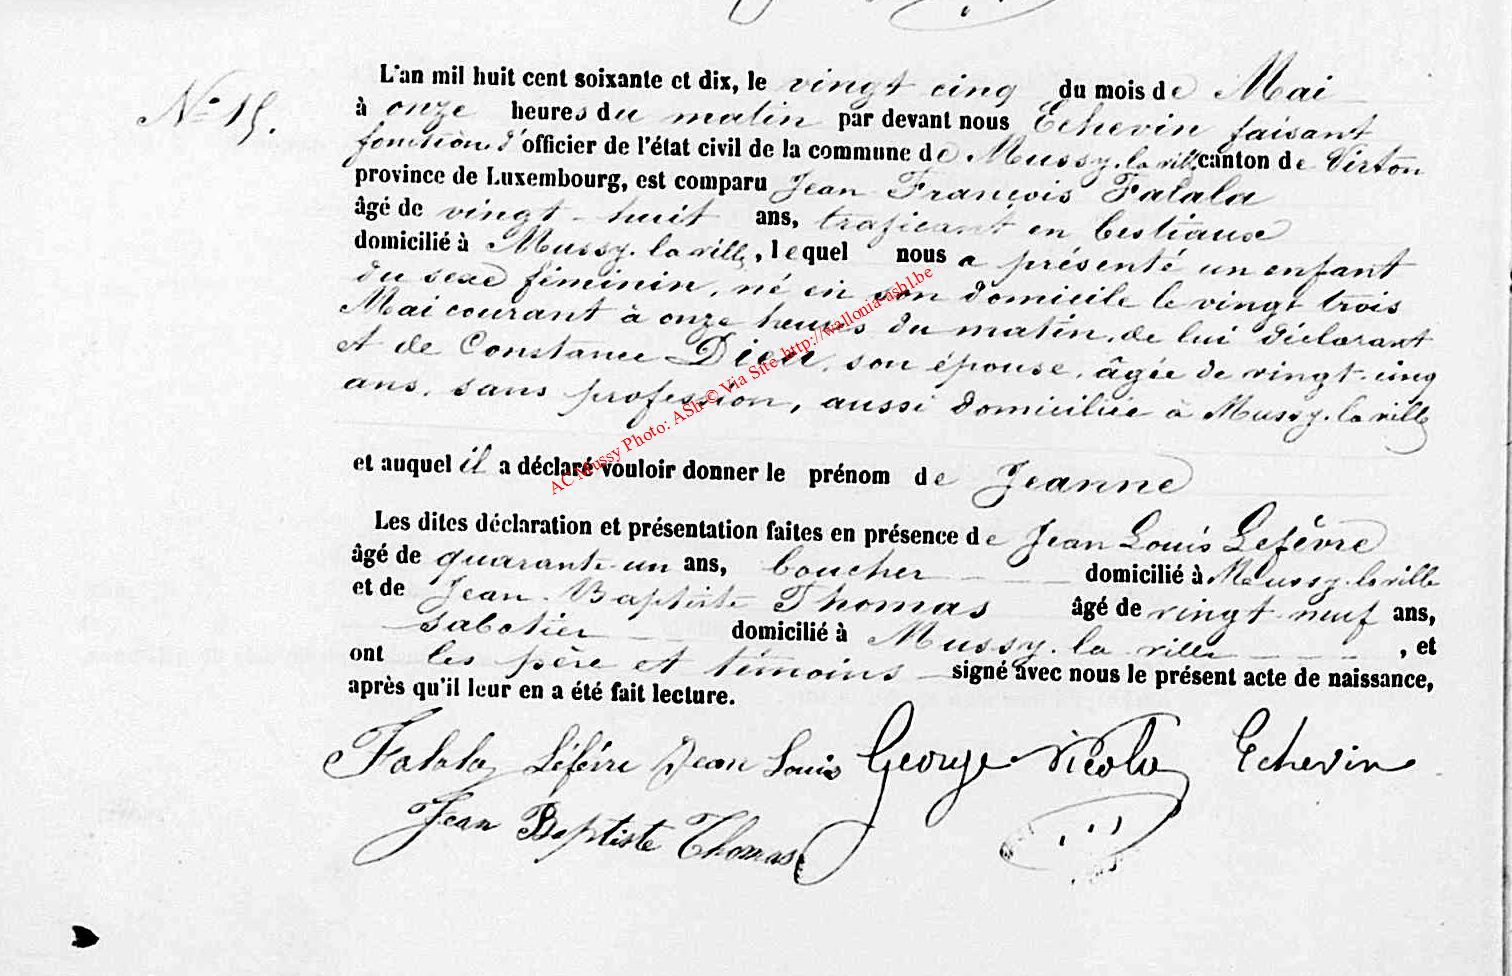 N° 15.
L'an mil huit cent soixante et dix, le vingt cinq du mois de Mai
à onze heures du matin par devant nous Echevin faisant
fonctions d'officier de l'état civil de la commune de Mussy-la-ville canton de Virton
province de Luxembourg, est comparu Jean François Falala
âgé de vingt-huit ans, traficant en bestiaux
domicilié à Mussy-la-ville, lequel nous a présenté un enfant
du sexe féminin, né en son domicile le vingt trois
Mai courant à onze heures du matin, de lui déclarant
et de Constance Dieu, son épouse, âgée de vingt-cinq
ans, sans profession, aussi domiciliée à Mussy-la-ville
et auquel il a déclaré vouloir donner le prénom de Jeanne
Les dites déclaration et présentation faites en présence de Jean Louis Lefèvre
âgé de quarante-un ans, boucher domicilié à Mussy-la-ville
et de Jean-Baptiste Thomas âgé de vingt-neuf ans,
sabotier domicilié à Mussy-la-ville, et
ont les père et témoins signé avec nous le présent acte de naissance,
après qu'il leur en a été fait lecture.
Falala Léfévre Jean Louis George Nicola Echevin
Jean Baptiste Thomas
AC Mussy Photo: ASh © Via Site http://wallonia-ash1.be